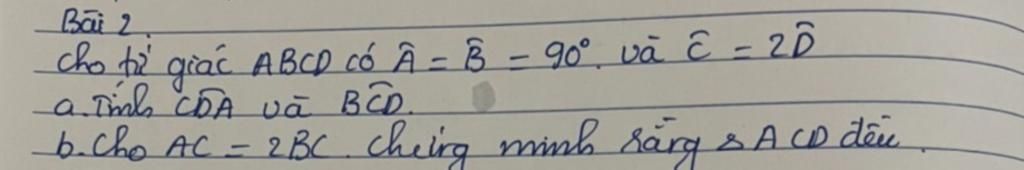 Bài 2.
Cho tứ giác ABCD có Â = B̂ = 90°. và Ĉ = 2D̂
a. Tính CD̂A và BĈD.
b. Cho AC = 2BC. Chứng minh rằng △ACD đều.